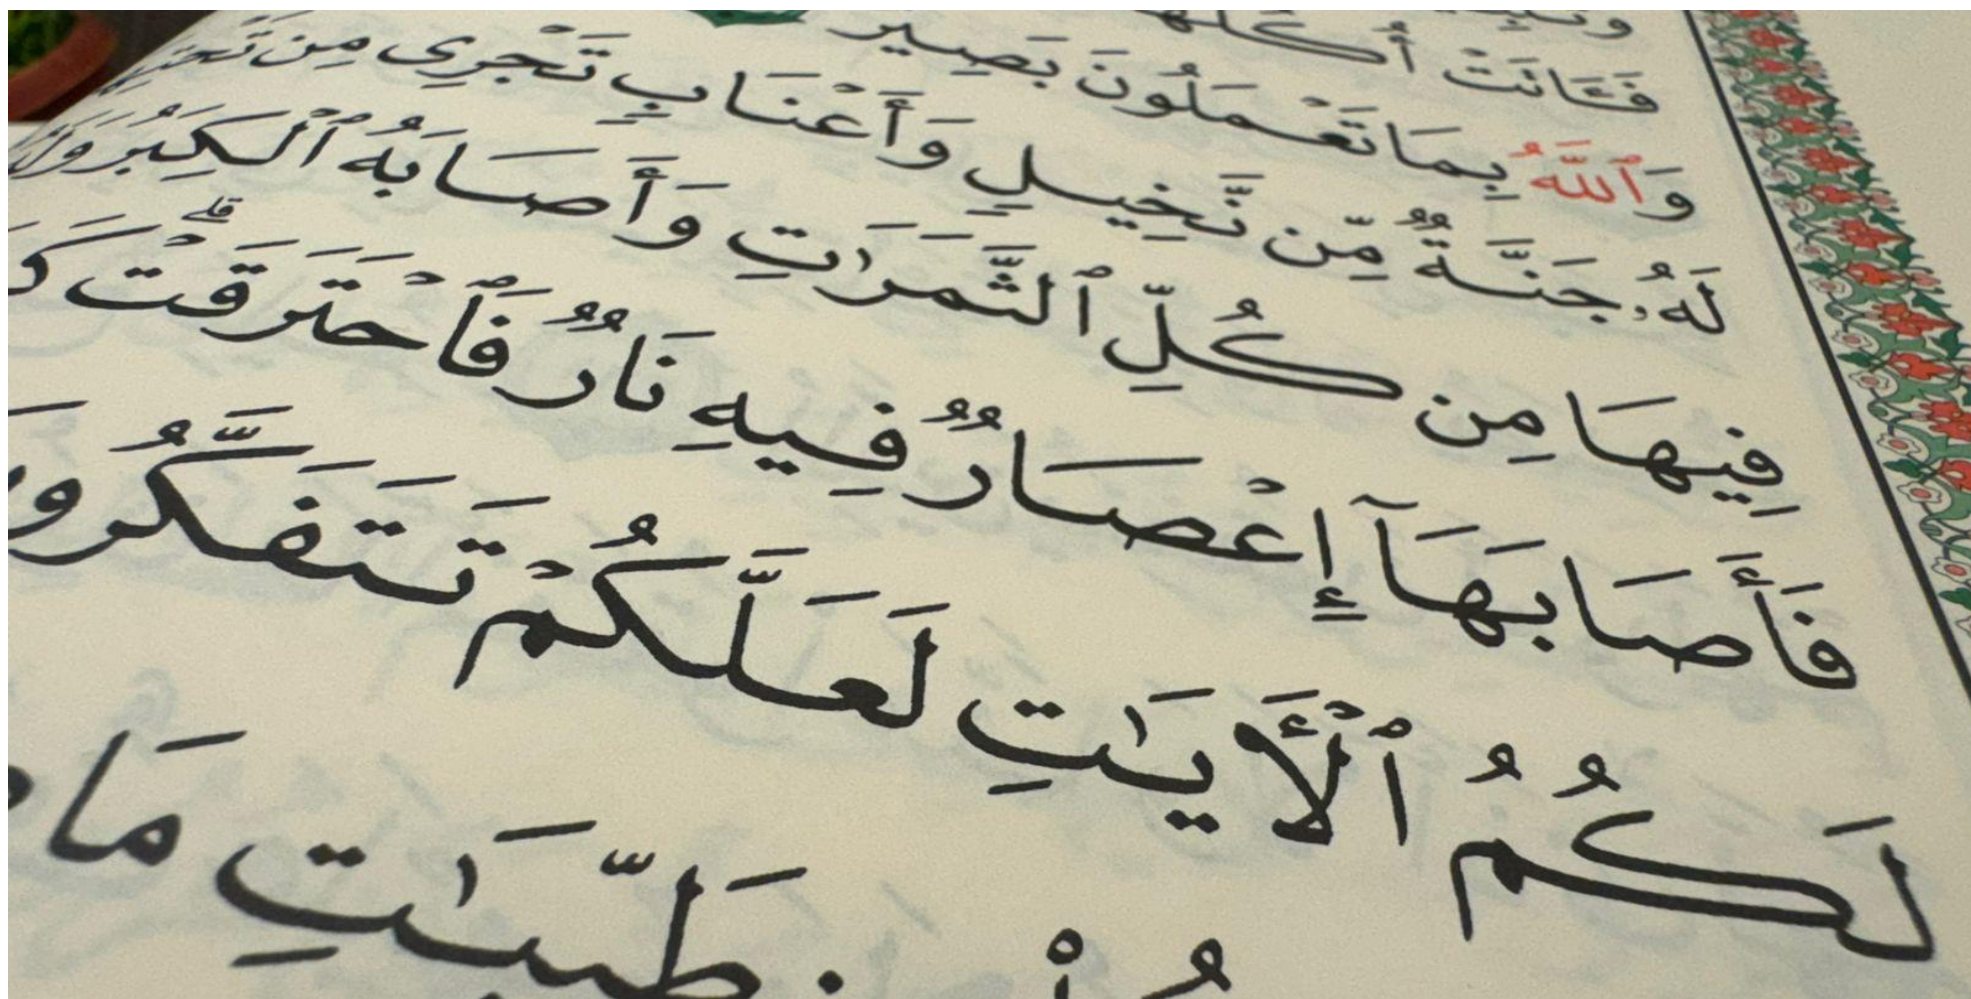 فَـَٔاتَتْ أُكُلَهَا
وَٱللَّهُ بِمَا تَعْمَلُونَ بَصِيرٌ
لَهُۥ جَنَّةٌ مِّن نَّخِيلٍ وَأَعْنَابٍ تَجْرِى مِن تَحْتِهَا
فِيهَا مِن كُلِّ ٱلثَّمَرَٰتِ وَأَصَابَهُ ٱلْكِبَرُ وَلَهُۥ
فَأَصَابَهَآ إِعْصَارٌ فِيهِ نَارٌ فَٱحْتَرَقَتْ ۗ
لَكُمُ ٱلْأَيَٰتِ لَعَلَّكُمْ تَتَفَكَّرُو
طَيِّبَٰتِ مَا